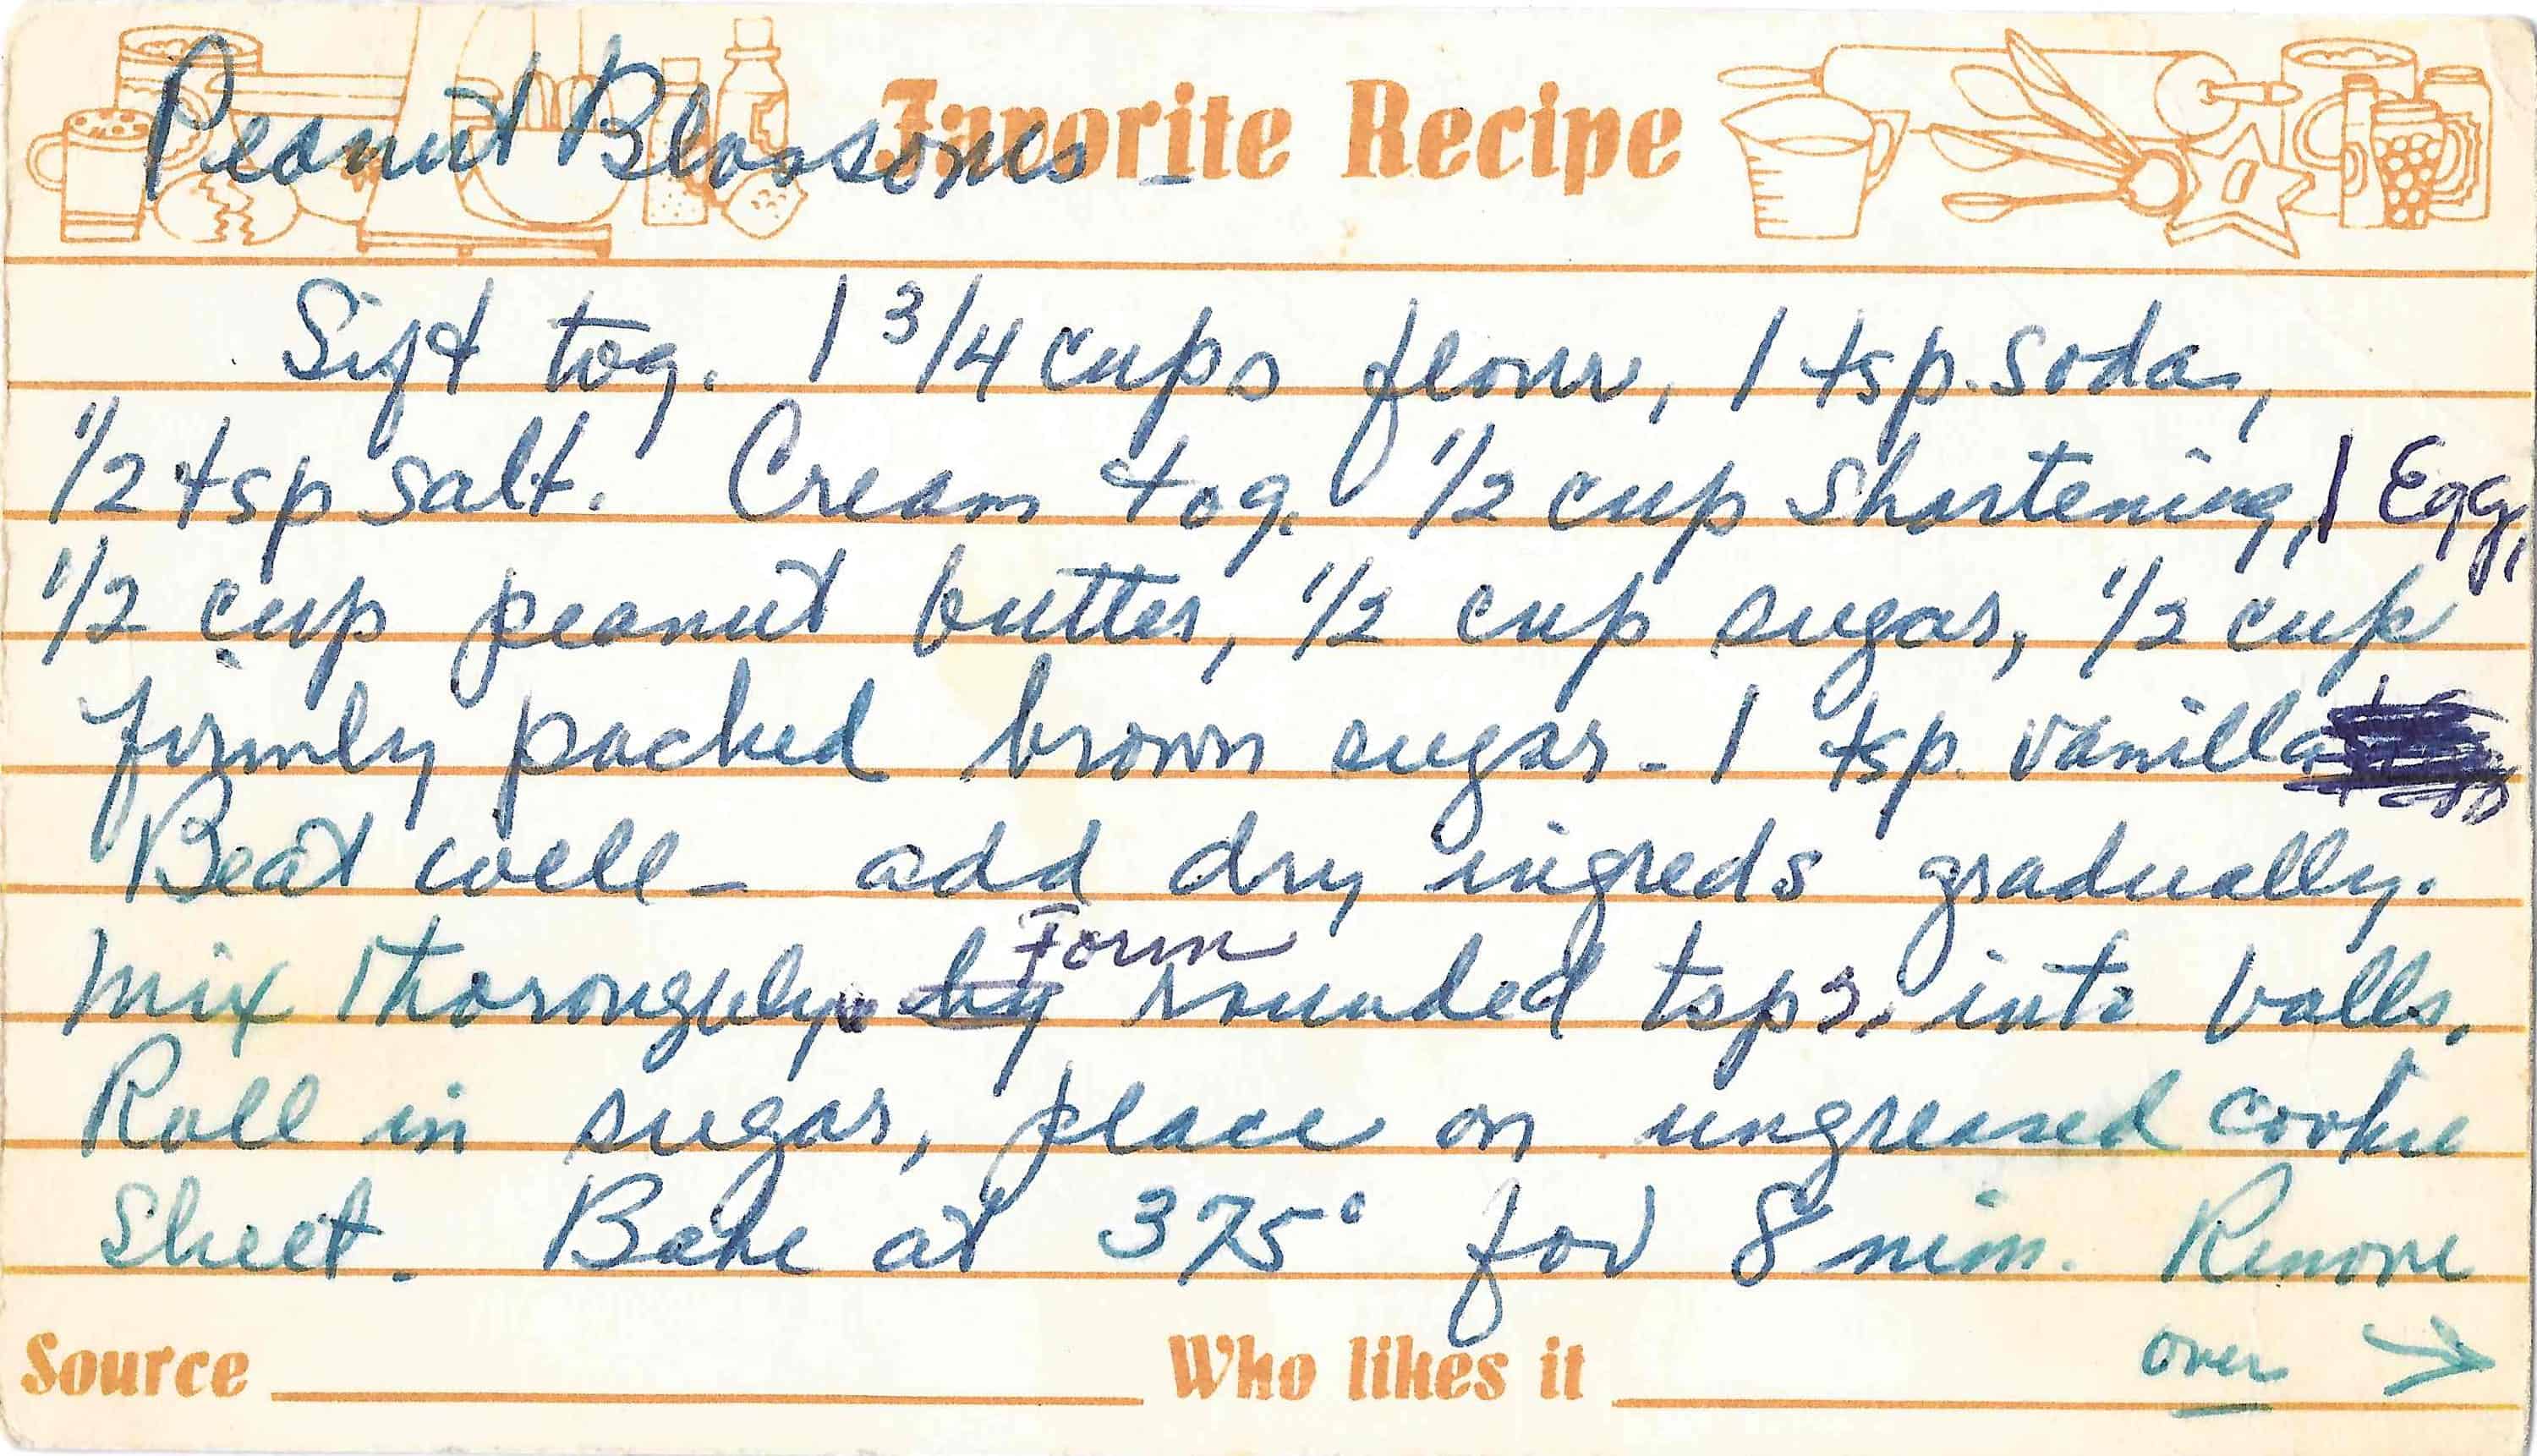 Peanut Blossoms -
Favorite Recipe
Sift tog. 1 3/4 cups flour, 1 tsp. soda,
1/2 tsp salt. Cream tog. 1/2 cup shortening, 1 Egg,
1/2 cup peanut butter, 1/2 cup sugar, 1/2 cup
firmly packed brown sugar - 1 tsp. vanilla
Beat well - add dry ingreds gradually.
Form
Mix thoroughly. by rounded tsps. into balls.
Roll in sugar, place on ungreased cookie
Sheet. Bake at 375° for 8 min. Remove
over →
Source Who likes it